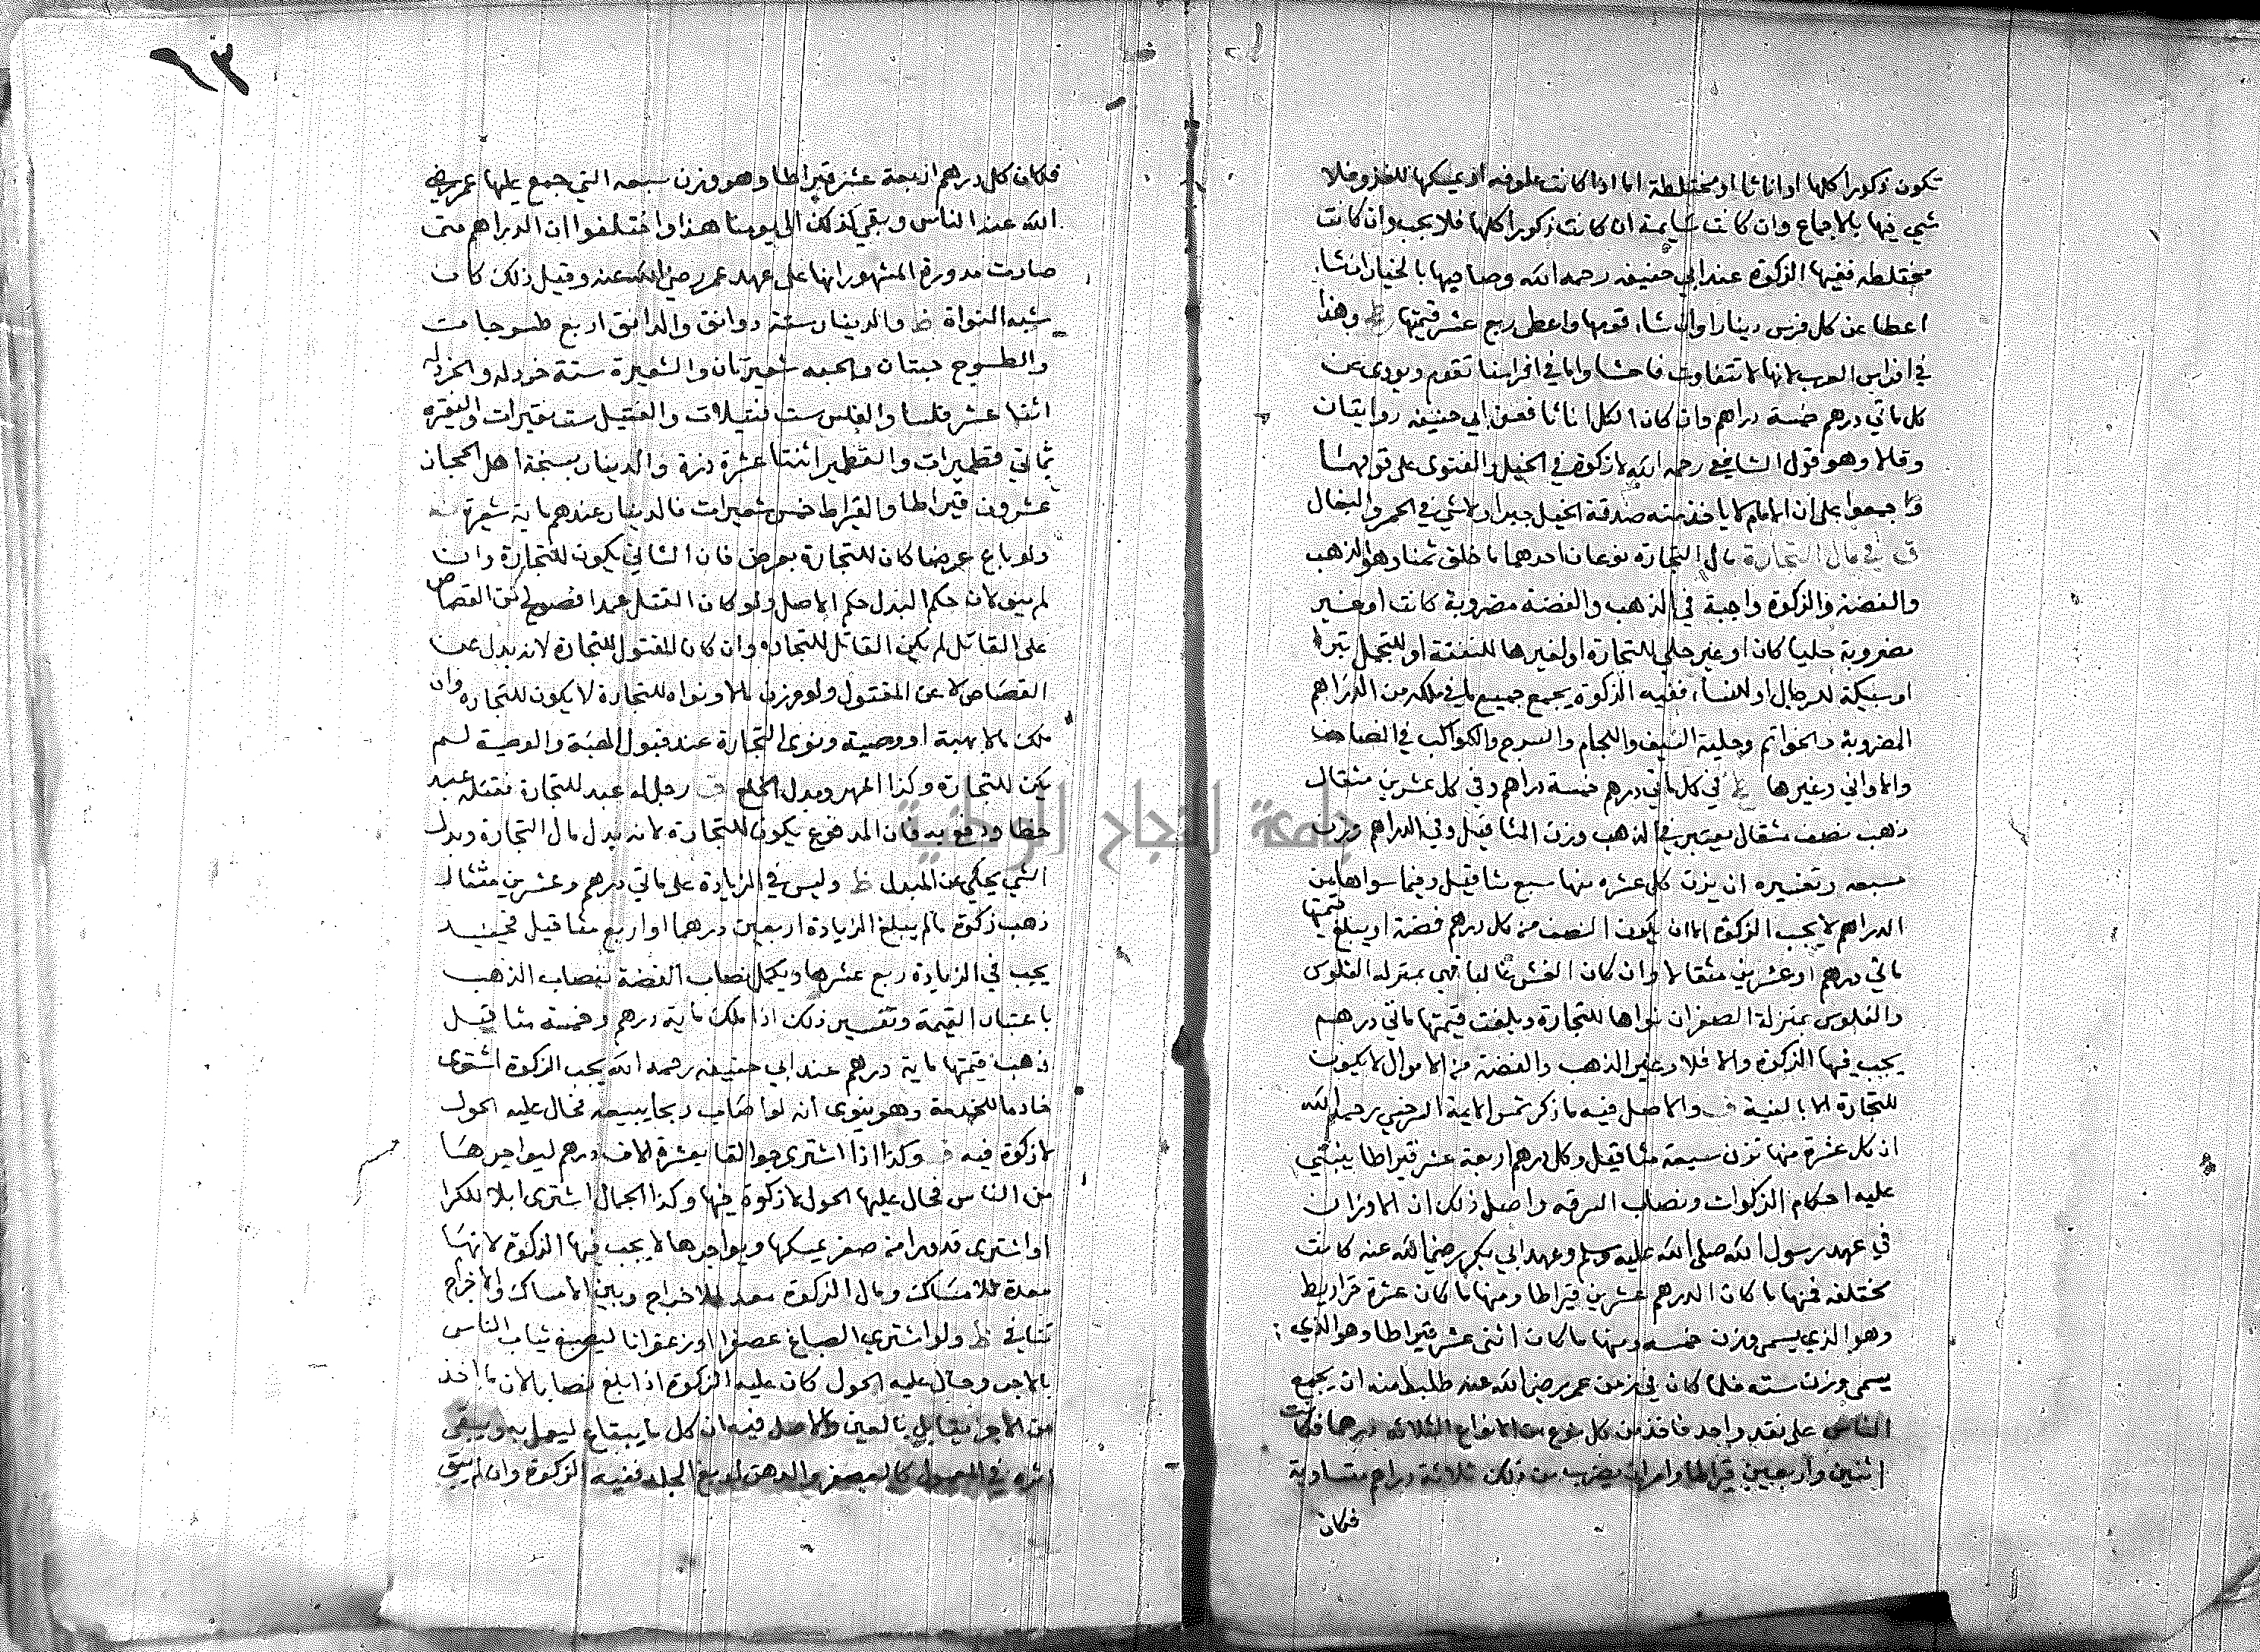 تكون ذكورا كلها او اناثا او مختلطة اما اذا كانت علوفه او يمسكها للغزو فلا
شي فيها بالاجماع وان كانت سايمة ان كانت ذكورا كلها فلا يجب وان كانت
مختلطه ففيها الزكوة عند ابي حنيفه رحمه الله وصاحبها بالخيار ان شا
اعطا عن كل فرس دينارا وان شا قومها واعطى ربع عشر قيمتها ط وهذا
في افراس العرب لانها لا تتفاوت فاحشا واما في افراسنا تقوم ويودى عن
كل ماتي درهم خمسة دراهم وان كان الكل اناثا فعن ابي حنيفه روايتان
وقالا وهو قول الشافعي رحمه الله لا زكوة في الخيل والفتوى على قولهما
واجمعوا على ان الامام لا ياخذ منه صدقة الخيل جبرا ولا شي في الحمر والبغال
ق في مال التجارة مال التجاره نوعان احدهما ما خلق ثمنا وهو الذهب
والفضة والزكوة واجبة في الذهب والفضة مضروبة كانت او غير
مضروبة حليا كان او غير حلي للتجارة او لغيرها للنفقة او للتجمل تبرا
او سبيكة للرجال او للنساء ففيه الزكوة يجمع جميع ما في ملكه من الدراهم
المضروبة والخواتم وحلية السيف واللجام والسرج والكواكب في المصاحف
والاواني وغيرها ط في كل ماتي درهم خمسة دراهم وفي كل عشرين مثقال
ذهب نصف مثقال يعتبر في الذهب وزن المثاقيل وفي الدراهم وزن
سبعه وتفسيره ان يزن كل عشره منها سبع مثاقيل وفيما سواها من
الدراهم لا يجب الزكوة الا ان يكون النصف من كل درهم فضة او يبلغ قيمتها
ماتي درهم او عشرين مثقالا وان كان الغش غالبا فهي بمنزله الفلوس
والفلوس بمنزلة الصفر ان نواها للتجارة وبلغت قيمتها ماتي درهم
يجب فيها الزكوة والا فلا وغير الذهب والفضة من الاموال لا يكون
للتجارة الا بالنية والاصل فيه ما ذكر شمس الايمة السرخسي رحمه الله
ان كل عشرة منها تزن سبعة مثاقيل وكل درهم اربعة عشر قيراطا يبتني
عليه احكام الزكوات ونصاب السرقه واصل ذلك ان الاوزان
في عهد رسول الله صلى الله عليه وسلم وعهد ابي بكر رضي الله عنه كانت
مختلفه فمنها ما كان الدرهم عشرين قيراطا ومنها ما كان عشرة قراريط
وهو الذي يسمى وزن خمسه ومنها ما كان اثنى عشر قيراطا وهو الذي
يسمى وزن سته فلما كان في زمن عمر رضي الله عنه طلبوا منه ان يجمع
الناس على نقد واحد فاخذ من كل نوع من الانواع الثلاثه درهما فكانت
اثنين واربعين قيراطا وامر ان يضرب من ذلك ثلاثة دراهم متساوية
فكان
٦٣
فكان كل درهم اربعة عشر قيراطا وهو وزن سبعه التي جمع عليها عمر رضي
الله عنه الناس وبقي كذلك الى يومنا هذا واختلفوا ان الدراهم متى
صارت مدورة المشهور انها على عهد عمر رضي الله عنه وقبل ذلك كان
شبه النواة ظ والدينار ستة دوانق والدانق اربع طسوجات
والطسوج حبتان والحبه شعيرتان والشعيرة ستة خردله والخردله
اثنا عشر فلسا والفلس ست فتيلات والفتيل ست نقيرات والنقره
ثماني قطميرات والقطمير اثنتا عشرة ذرة والدينار بسنجة اهل الحجاز
عشرون قيراطا والقيراط خمس شعيرات فالدينار عندهم ماية شعيرة
ولو باع عرضا كان للتجارة بعرض فان الثاني يكون للتجارة وان
لم ينو لان حكم البدل حكم الاصل ولو كان القتل عمدا فصولح عن القصاص
على القاتل لم يكن القاتل للتجاره وان كان المقتول للتجارة لانه بدل عن
القصاص لا عن المقتول ولو ورث مالا ونواه للتجارة لا يكون للتجاره وان
ملك مالا بهبة او وصية ونوى التجارة عند قبول الهبة والوصية لم
يكن للتجارة وكذا المهر وبدل الخلع ق رجل له عبد للتجارة فقتله عبد
خطا ودفع به فان المدفوع يكون للتجارة لانه بدل مال التجارة وبدل
الشي يحكي عن المبدل ظ وليس في الزيادة على ماتي درهم وعشرين مثقال
ذهب زكوة مالم يبلغ الزيادة اربعين درهما او اربع مثاقيل فحينيذ
يجب في الزيادة ربع عشرها ويكمل نصاب الفضة بنصاب الذهب
باعتبار القيمة وتفسير ذلك اذا ملك ماية درهم وخمسة مثاقيل
ذهب قيمتها ماية درهم عند ابي حنيفه رحمه الله يجب الزكوة اشترى
خادما للخدمة وهو ينوى انه لو اصاب ربحا يبيعه فحال عليه الحول
لا زكوة فيه وكذا اذا اشترى جوالقا بعشرة الاف درهم ليواجرها
من الناس فحال عليها الحول لا زكوة فيها وكذا الجمال اشترى ابلا للكرا
او اشترى قدورا من صفر يمسكها ويواجرها لا يجب فيها الزكوة لانها
معدة للامساك ومال الزكوة معد للاخراج وبين الامساك والاخراج
تنافي ظ ولو اشترى الصباغ عصفرا او زعفرانا ليصبغ ثياب الناس
بالاجر وحال عليه الحول كان عليه الزكوة اذا بلغ نصابا لان ما اخذ
من الاجر يقابل بالعين والاصل فيه ان كل ما يبتاع ليعمل به ويبقى
اثره في المعمول كالعصفر والدهن لدبغ الجلد ففيه الزكوة وان لم يبق
جامعة النجاح الوطنية